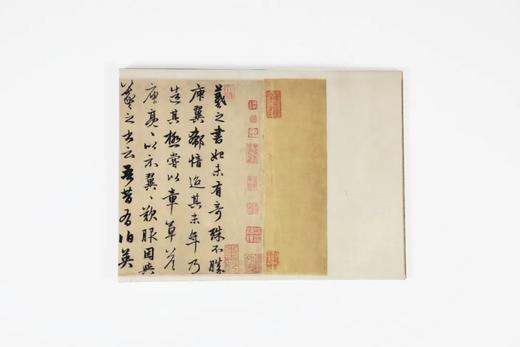 羲之書始未有奇殊不勝
庾翼郗愔迨其末年乃
造其極嘗以章草答
庾亮々以示翼々歎服因與
羲之書云吾昔有伯英